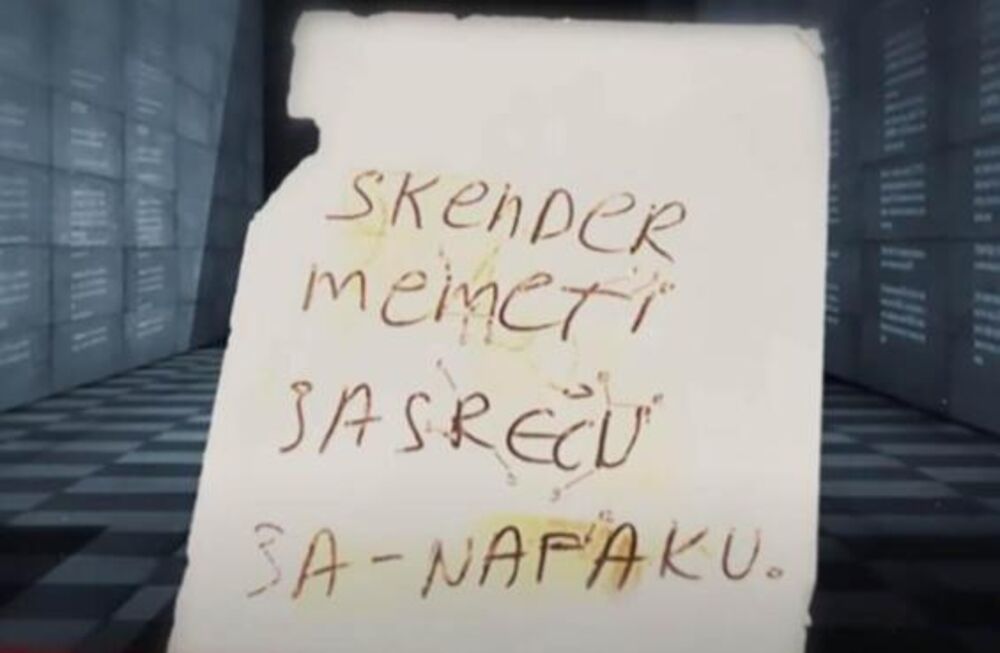 SKenDeR
memeti
ЗASREČU
ЗA-NAFAKU.